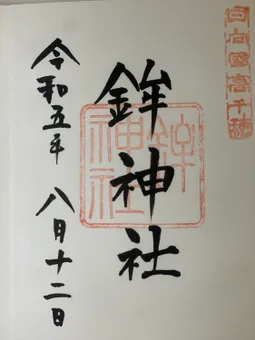 日向國高千穂
鉾神社
鉾神社
令和五年 八月十二日